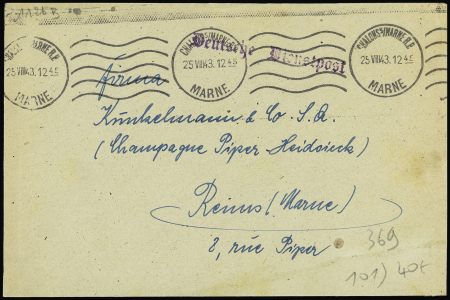 CHALONS S/MARNE R.P.
25 VII 43. 12 45
MARNE
CHALONS S/MARNE R.P.
25 VII 43. 12 45
MARNE
Deutsche Dienstpost
Firma
Kunkelmann & Co. S.A.
(Champagne Piper-Heidsieck)
Reims (Marne)
8, rue Piper
369
101) 40€